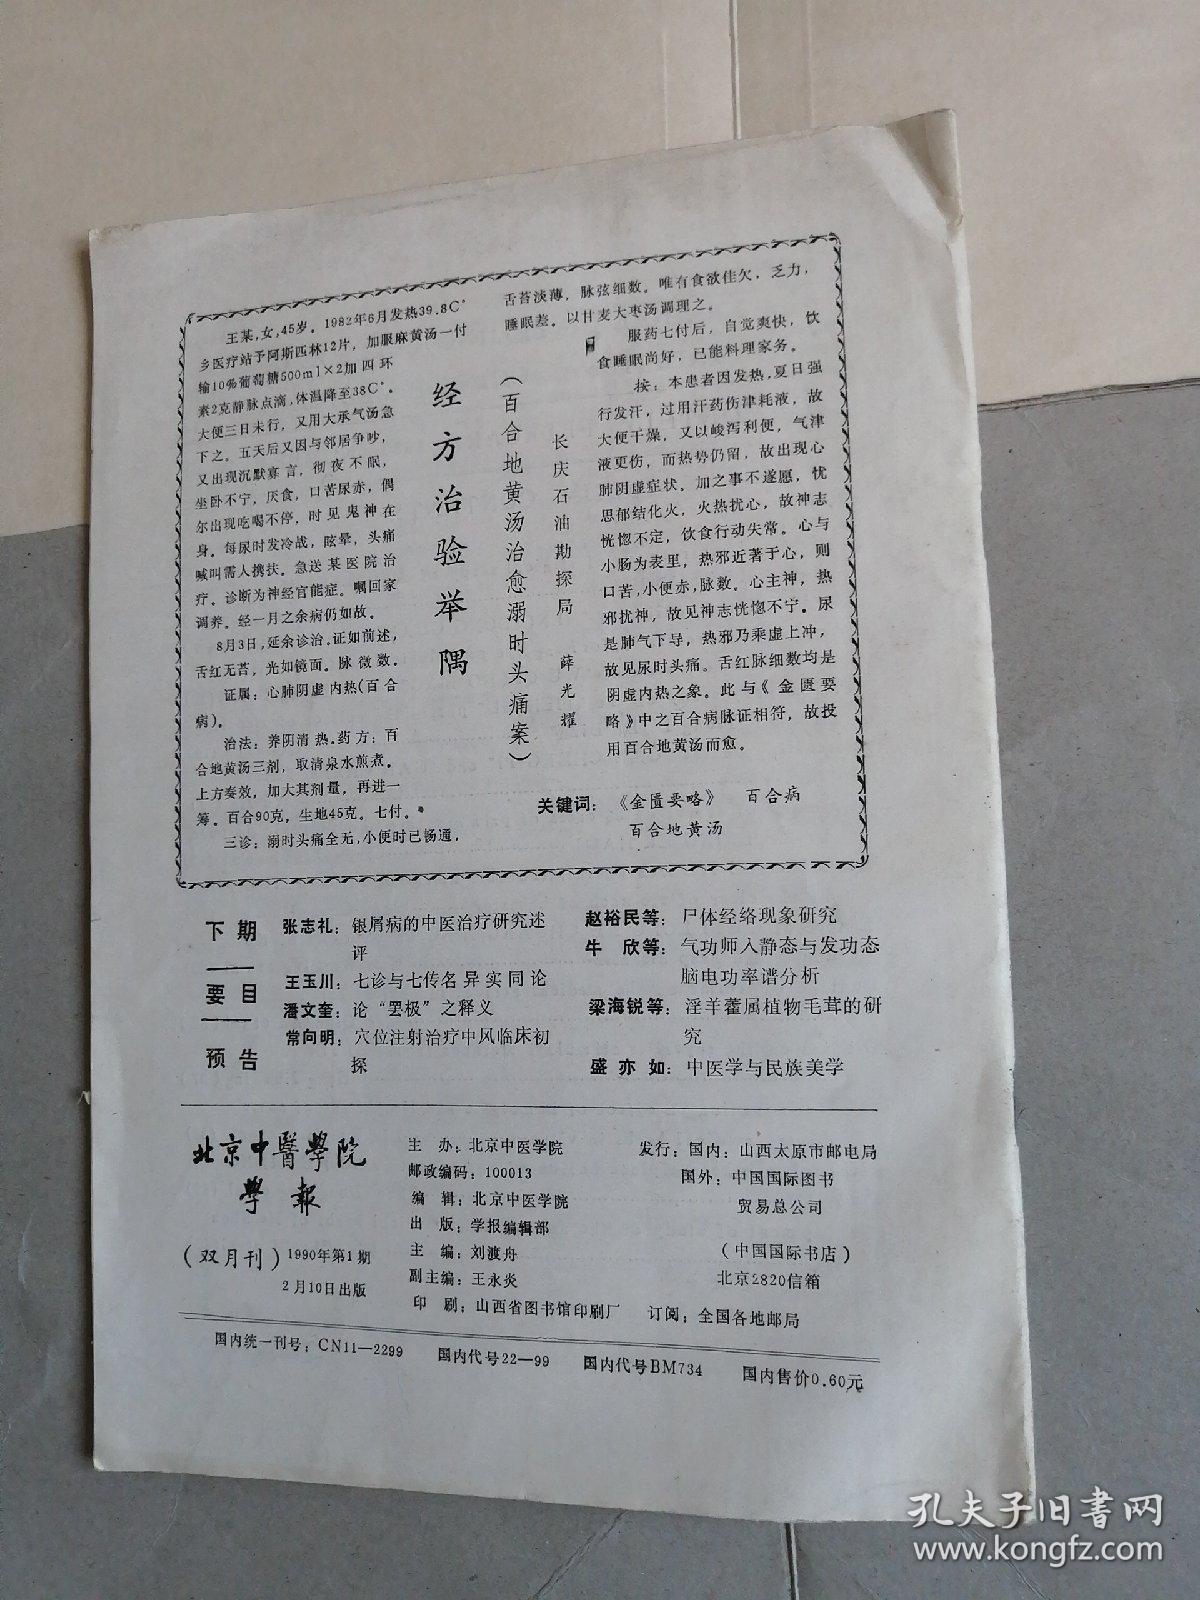 经方治验举隅
(百合地黄汤治愈溺时头痛案)
长庆石油勘探局 薛光耀
王某,女,45岁。1982年6月发热39.8C°
乡医疗站予阿斯匹林12片,加服麻黄汤一付
输10%葡萄糖500ml×2加四环
素2克静脉点滴,体温降至38C°。
大便三日未行,又用大承气汤急
下之。五天后又因与邻居争吵,
又出现沉默寡言,彻夜不眠,
坐卧不宁,厌食,口苦尿赤,偶
尔出现吃喝不停,时见鬼神在
身。每尿时发冷战,眩晕,头痛
喊叫需人携扶。急送某医院治
疗。诊断为神经官能症。嘱回家
调养。经一月之余病仍如故。
8月3日,延余诊治。证如前述,
舌红无苔,光如镜面。脉微数。
证属:心肺阴虚内热(百合
病)。
治法:养阴清热。药方:百
合地黄汤三剂,取清泉水煎煮。
上方奏效,加大其剂量,再进一
筹。百合90克,生地45克。七付。
三诊:溺时头痛全无,小便时已畅通,
舌苔淡薄,脉弦细数。唯有食欲佳欠,乏力,
睡眠差。以甘麦大枣汤调理之。
服药七付后,自觉爽快,饮
食睡眠尚好,已能料理家务。
按:本患者因发热,夏日强
行发汗,过用汗药伤津耗液,故
大便干燥,又以峻泻利便,气津
液更伤,而热势仍留,故出现心
肺阴虚症状。加之事不遂愿,忧
思郁结化火,火热扰心,故神志
恍惚不定,饮食行动失常。心与
小肠为表里,热邪近著于心,则
口苦,小便赤,脉数。心主神,热
邪扰神,故见神志恍惚不宁。尿
是肺气下导,热邪乃乘虚上冲,
故见尿时头痛。舌红脉细数均是
阴虚内热之象。此与《金匮要
略》中之百合病脉证相符,故投
用百合地黄汤而愈。
关键词:《金匮要略》 百合病
百合地黄汤
下期
要目
预告
张志礼:银屑病的中医治疗研究述
评
王玉川:七诊与七传名异实同论
潘文奎:论“罢极”之释义
常向明:穴位注射治疗中风临床初
探
赵裕民等:尸体经络现象研究
牛 欣等:气功师入静态与发功态
脑电功率谱分析
梁海锐等:淫羊藿属植物毛茸的研
究
盛亦如:中医学与民族美学
北京中醫學院
學報
(双月刊) 1990年第1期
2月10日出版
主 办:北京中医学院
邮政编码:100013
编 辑:北京中医学院
出 版:学报编辑部
主 编:刘渡舟
副主编:王永炎
印 刷:山西省图书馆印刷厂
发行:国内:山西太原市邮电局
国外:中国国际图书
贸易总公司
(中国国际书店)
北京2820信箱
订阅:全国各地邮局
国内统一刊号:CN11—2299 国内代号22—99 国内代号BM734 国内售价0.60元
孔夫子旧书网
www.kongfz.com